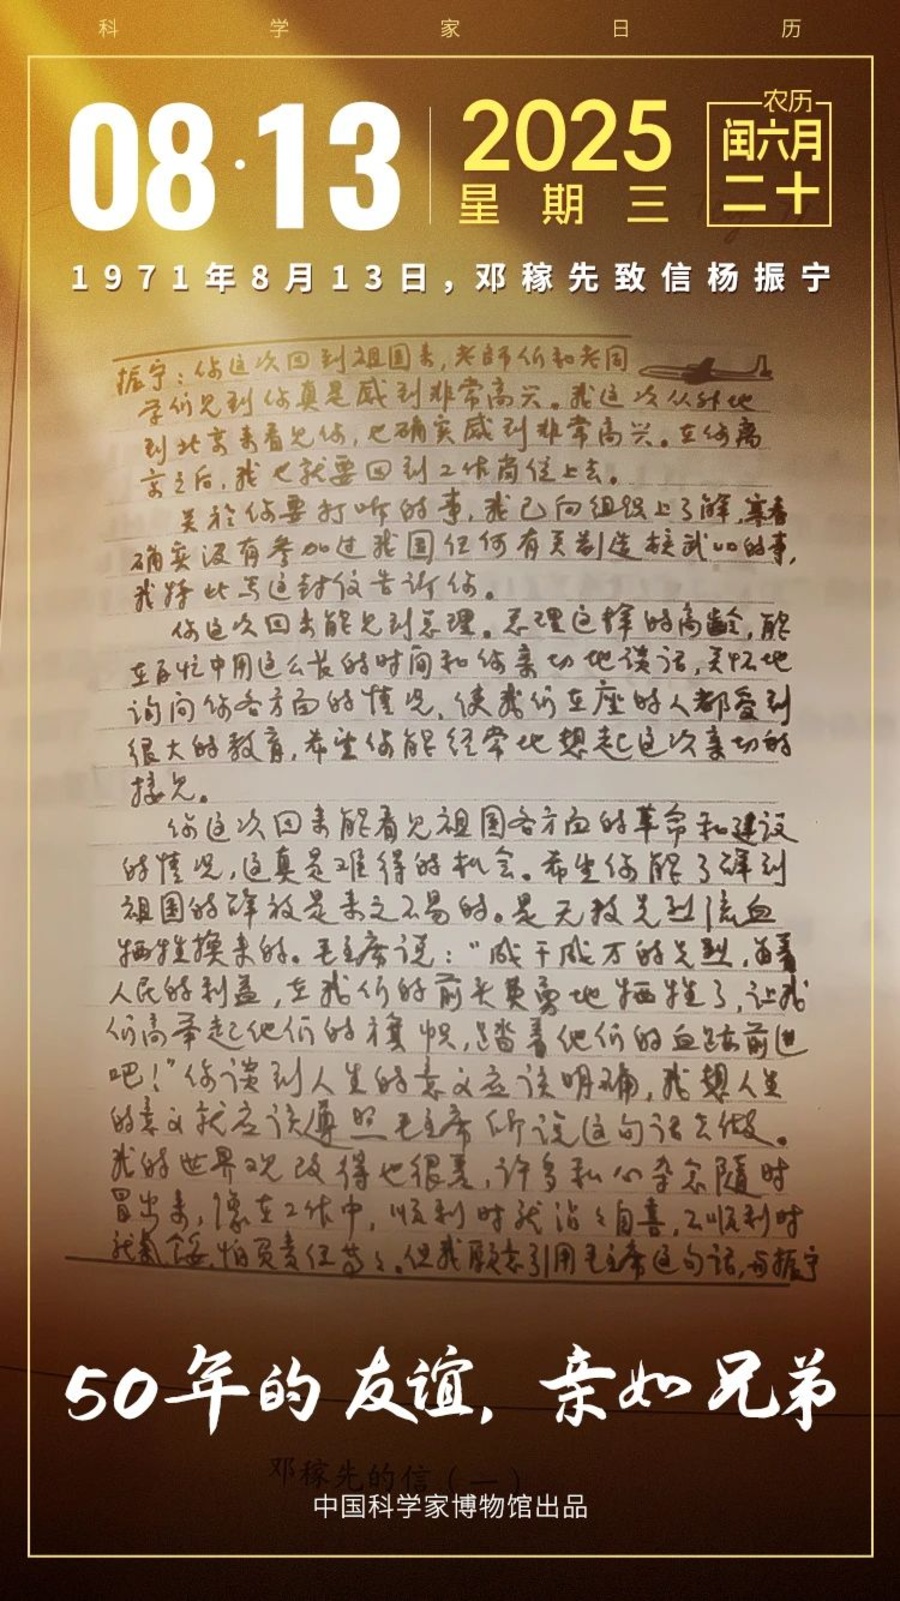 科学家日历
08·13
2025
星期三
农历
闰六月
二十
1971年8月13日,邓稼先致信杨振宁
振宁：你这次回到祖国来,老师们和老同
学们见到你真是感到非常高兴。我这次从外地
到北京来看见你,也确实感到非常高兴。在你离
京之后,我也就要回到工作岗位上去。
关于你要打听的事,我已向组织上了解,寒春
确实没有参加过我国任何有关制造核武四的事,
我特此写这封信告诉你。
你这次回来能见到总理。总理这样的高龄,能
在百忙中用这么长的时间和你亲切地谈话,关怀地
询问你各方面的情况,使我们在座的人都受到
很大的教育,希望你能经常地想起这次亲切的
接见。
你这次回来能看见祖国各方面的革命和建设
的情况,这真是难得的机会。希望你能了解到
祖国的解放是来之不易的。是无数先烈流血
牺牲换来的。毛主席说：“成千成万的先烈,为着
人民的利益,在我们的前头英勇地牺牲了,让我
们高举起他们的旗帜,踏着他们的血迹前进
吧！”你谈到人生的意义应该明确,我想人生
的意义就应该遵照毛主席所说这句话去做。
我的世界观改得也很差,许多私心杂念随时
冒出来,像在工作中,顺利时就沾沾自喜,不顺利时
就气馁,怕负责任等等。但我愿意引用毛主席这句话,与振宁
50年的友谊,亲如兄弟
邓稼先的信(一)
中国科学家博物馆出品